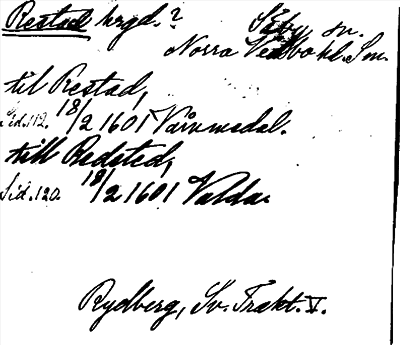 Restad hrgd.? Säby sn.
Norra Vedbo hd. Sm.
til Restad,
Sid. 112. 18/2 1601 Vårnmedal.
till Redsted,
Sid. 120. 18/2 1601 Valda.
Rydberg, Sv. Trakt. V.